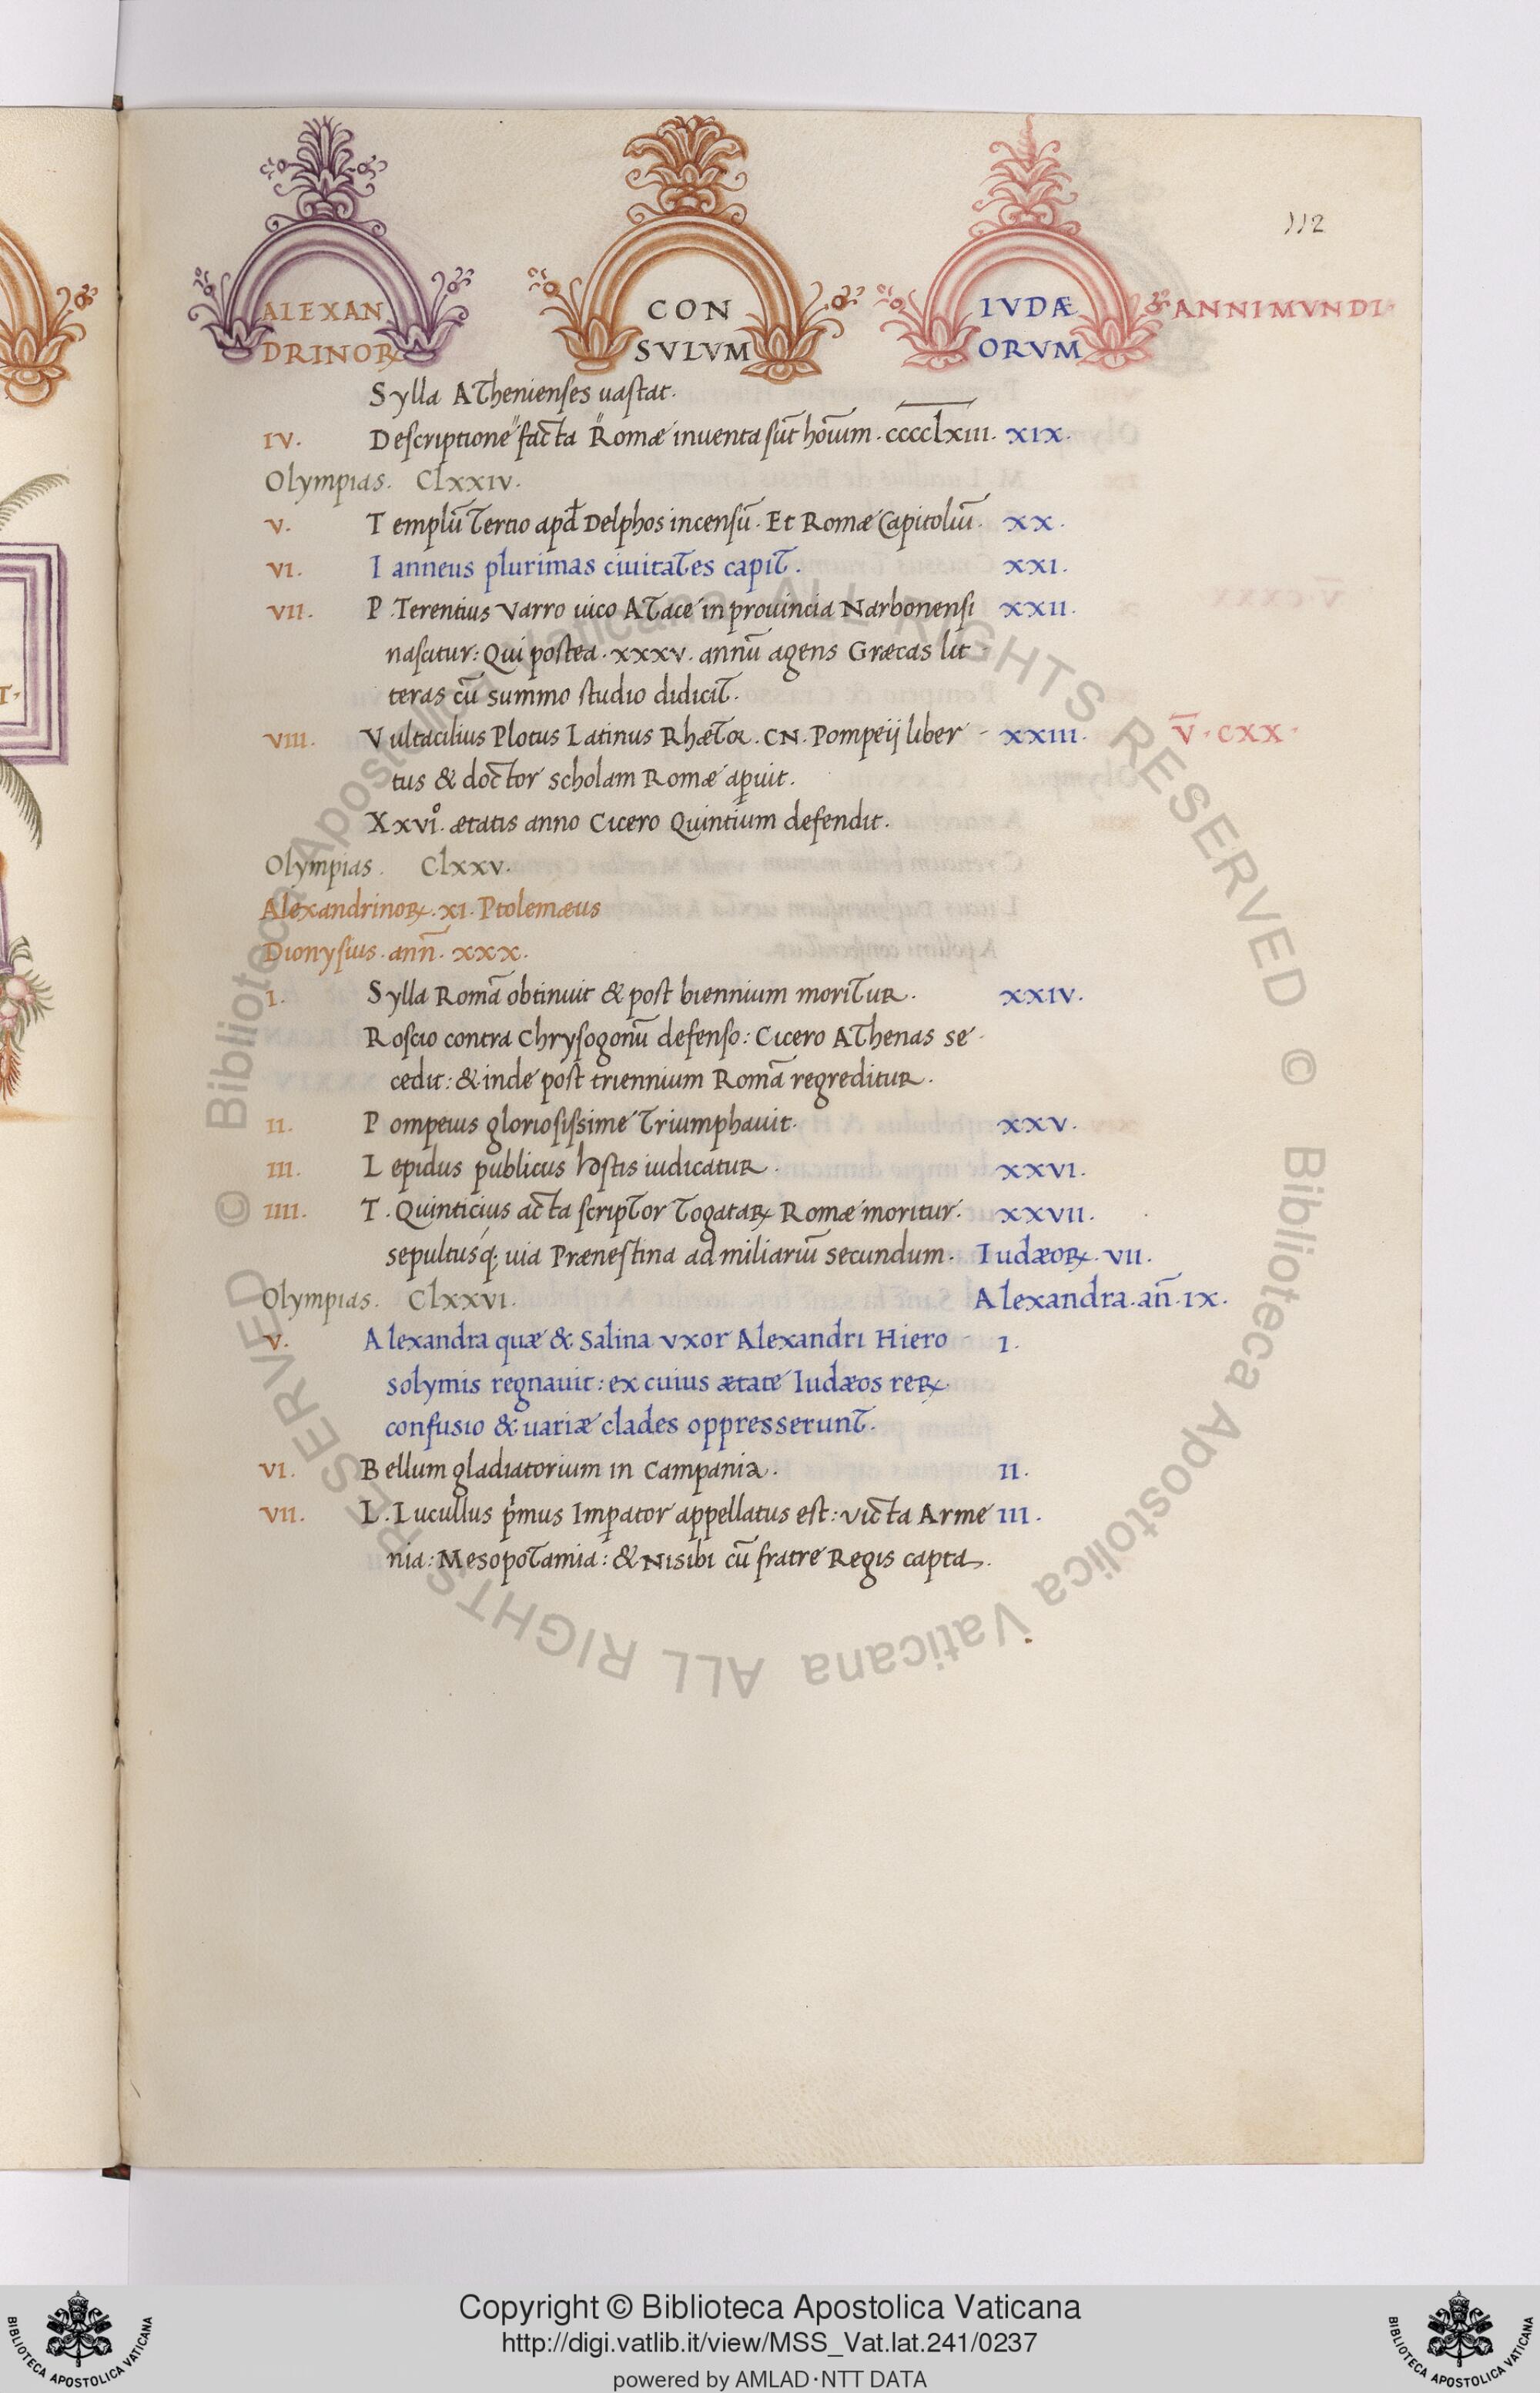 112
ALEXAN
DRINOꝜ
CON
SVLVM
IVDÆ
ORVM
ANNI MVNDI
Sylla Athenienses uastat.
IV. Descriptione" facta "Romæ inuenta sūt hoīum. cccclxiii. XIX.
Olympias. Clxxiv.
V. Templū tertio apd Delphos incensū. Et Romæ Capitoliū. XX.
VI. Ianneus plurimas ciuitates capit. XXI.
VII. P. Terentius Varro uico Atace in prouincia Narbonensi XXII.
nascitur: Qui postea. xxxv. annū agens Græcas lit-
teras cū summo studio didicit.
VIII. Vultacilius Plotus Latinus Rhætor. CN. Pompeij liber- XXIII. V̅. CXX.
tus & doctor scholam Romæ apuit.
Xxvi°. ætatis anno Cicero Quintium defendit.
Olympias. Clxxv.
Alexandrinoꝝ. xi. Ptolemæus
Dionysius. ann̄. xxx.
I. Sylla Romā obtinuit & post biennium moritur. XXIV.
Roscio contra Chrysogonū defenso: Cicero Athenas se-
cedit: & inde post triennium Romā regreditur.
II. Pompeius gloriosissime triumphauit. XXV.
III. Lepidus publicus hostis iudicatur. XXVI.
IIII. T. Quinticius acta scriptor togataꝝ Romæ moritur. XXVII.
sepultusq; uia Prænestina ad miliariū secundum. Iudæoꝝ. VII.
Olympias. Clxxvi. Alexandra. an̄. IX.
V. Alexandra quæ & Salina uxor Alexandri Hiero- I.
solymis regnauit: ex cuius ætate Iudæos reꝝ
confusio & uariæ clades oppresserunt.
VI. Bellum gladiatorium in Campania. II.
VII. L. Lucullus pimus Impator appellatus est: uicta Arme III.
nia: Mesopotamia: & Nisibi cū fratre Regis capta.
© Biblioteca Apostolica Vaticana ALL RIGHTS RESERVED © Biblioteca Apostolica Vaticana ALL RIGHTS RESERVED
Copyright © Biblioteca Apostolica Vaticana
http://digi.vatlib.it/view/MSS_Vat.lat.241/0237
powered by AMLAD·NTT DATA
BIBLIOTECA APOSTOLICA VATICANA
BIBLIOTECA APOSTOLICA VATICANA